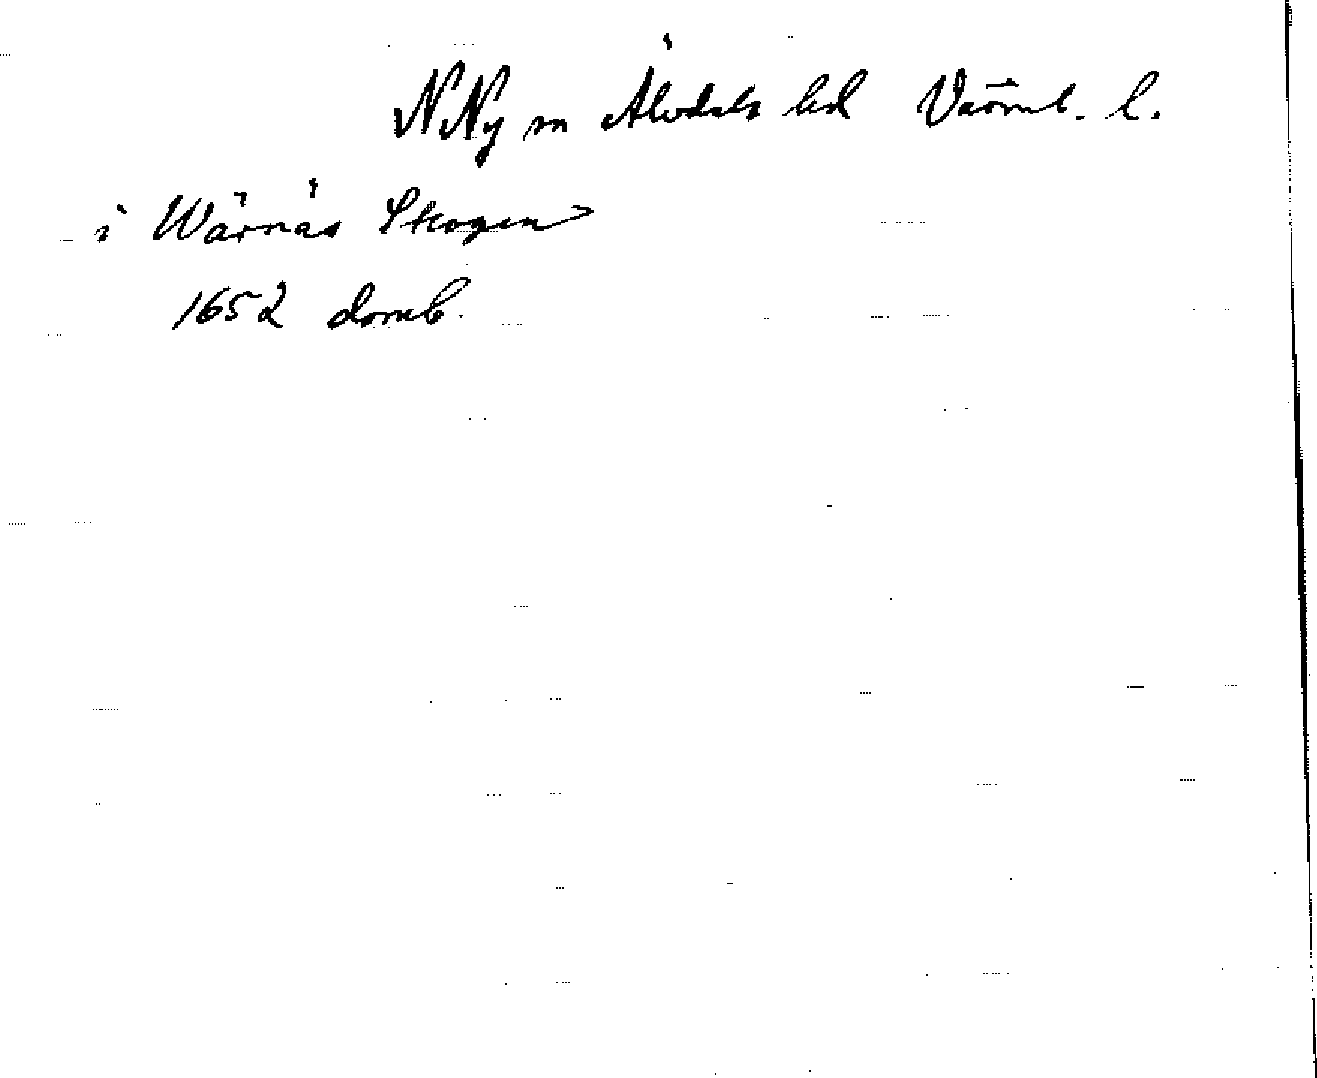 N Ny sn Älvdals hd Värml. l.
i Wärnäs Skogen
1652 domb.